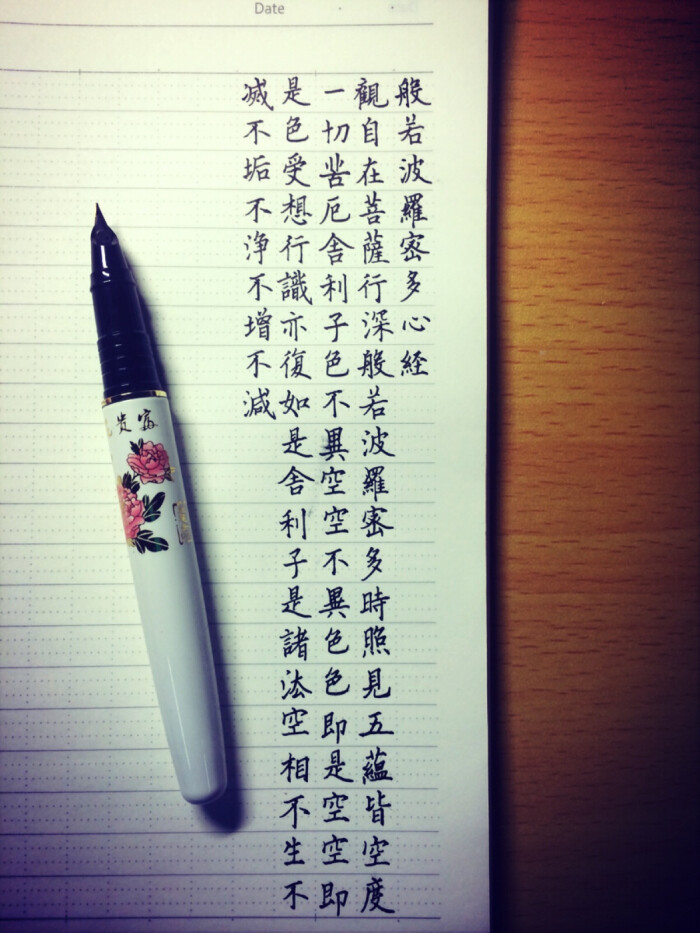 Date
般若波羅密多心経
觀自在菩薩行深般若波羅密多時照見五蘊皆空度
一切苦厄舍利子色不異空空不異色色即是空空即
是色受想行識亦復如是舍利子是諸法空相不生不
滅不垢不浄不增不減
富貴